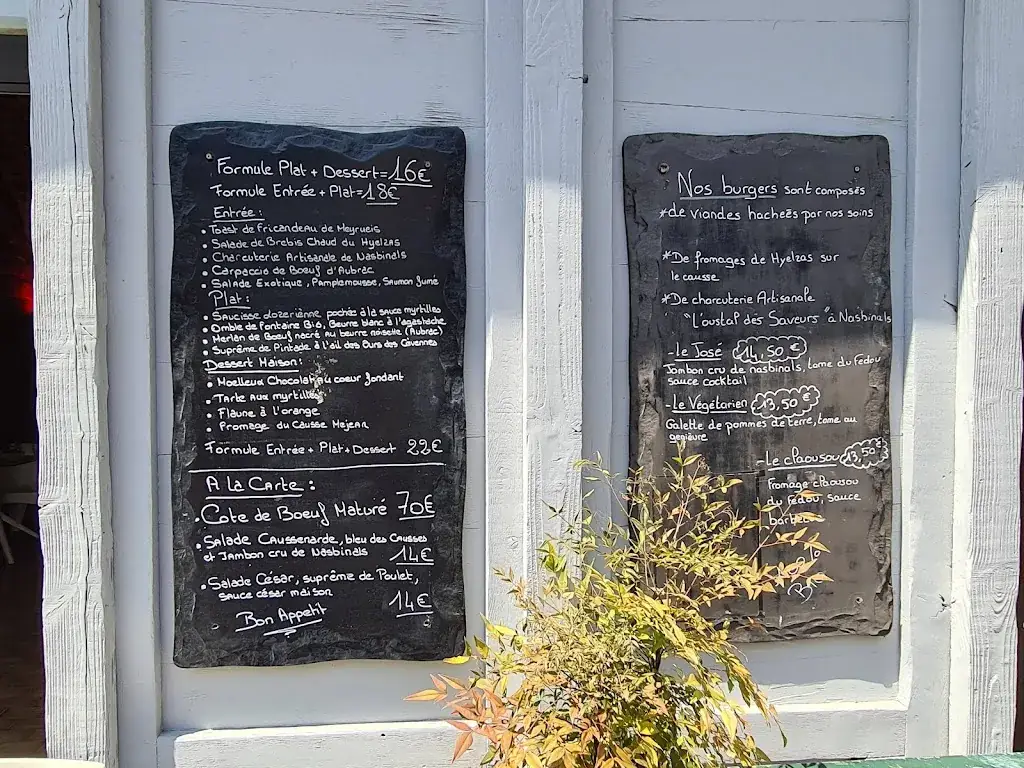 Formule Plat + Dessert = 16€
Formule Entrée + Plat = 18€
Entrée :
• Toast de Fricandeau de Meyrueis
• Salade de Brebis Chaud du Hyelzas
• Charcuterie Artisanale de Nasbinals
• Carpaccio de Boeuf d'Aubrac
• Salade Exotique, Pamplemousse, Saumon fumé
Plat :
• Saucisse Lozérienne pochée à la sauce myrtilles
• Omble de Fontaine Bio, Beurre blanc à l'agastache
• Merlan de Boeuf nacré au beurre noisette (Aubrac)
• Suprême de Pintade à l'ail des Ours des Cévennes
Dessert Maison :
• Moelleux Chocolat au coeur fondant
• Tarte aux myrtilles
• Flaune à l'orange
• Fromage du Causse Mejean
Formule Entrée + Plat + Dessert 22€
A la Carte :
• Cote de Boeuf Maturé 70€
• Salade Caussenarde, bleu des Causses
et Jambon cru de Nasbinals 14€
• Salade César, suprême de Poulet,
sauce césar maison 14€
Bon Appetit
Nos burgers sont composés
*de viandes hacheés par nos soins
*De fromages de Hyelzas sur
le causse
*De charcuterie Artisanale
"L'oustal des Saveurs" à Nasbinals
- Le José 14,50 €
Jambon cru de nasbinals, tome du fedou
sauce cocktail
- Le Végétarien 13,50 €
Galette de pommes de terre, tome au
genièvre
- Le claousou 13,50
Fromage claousou
du fedou, sauce
barbecue